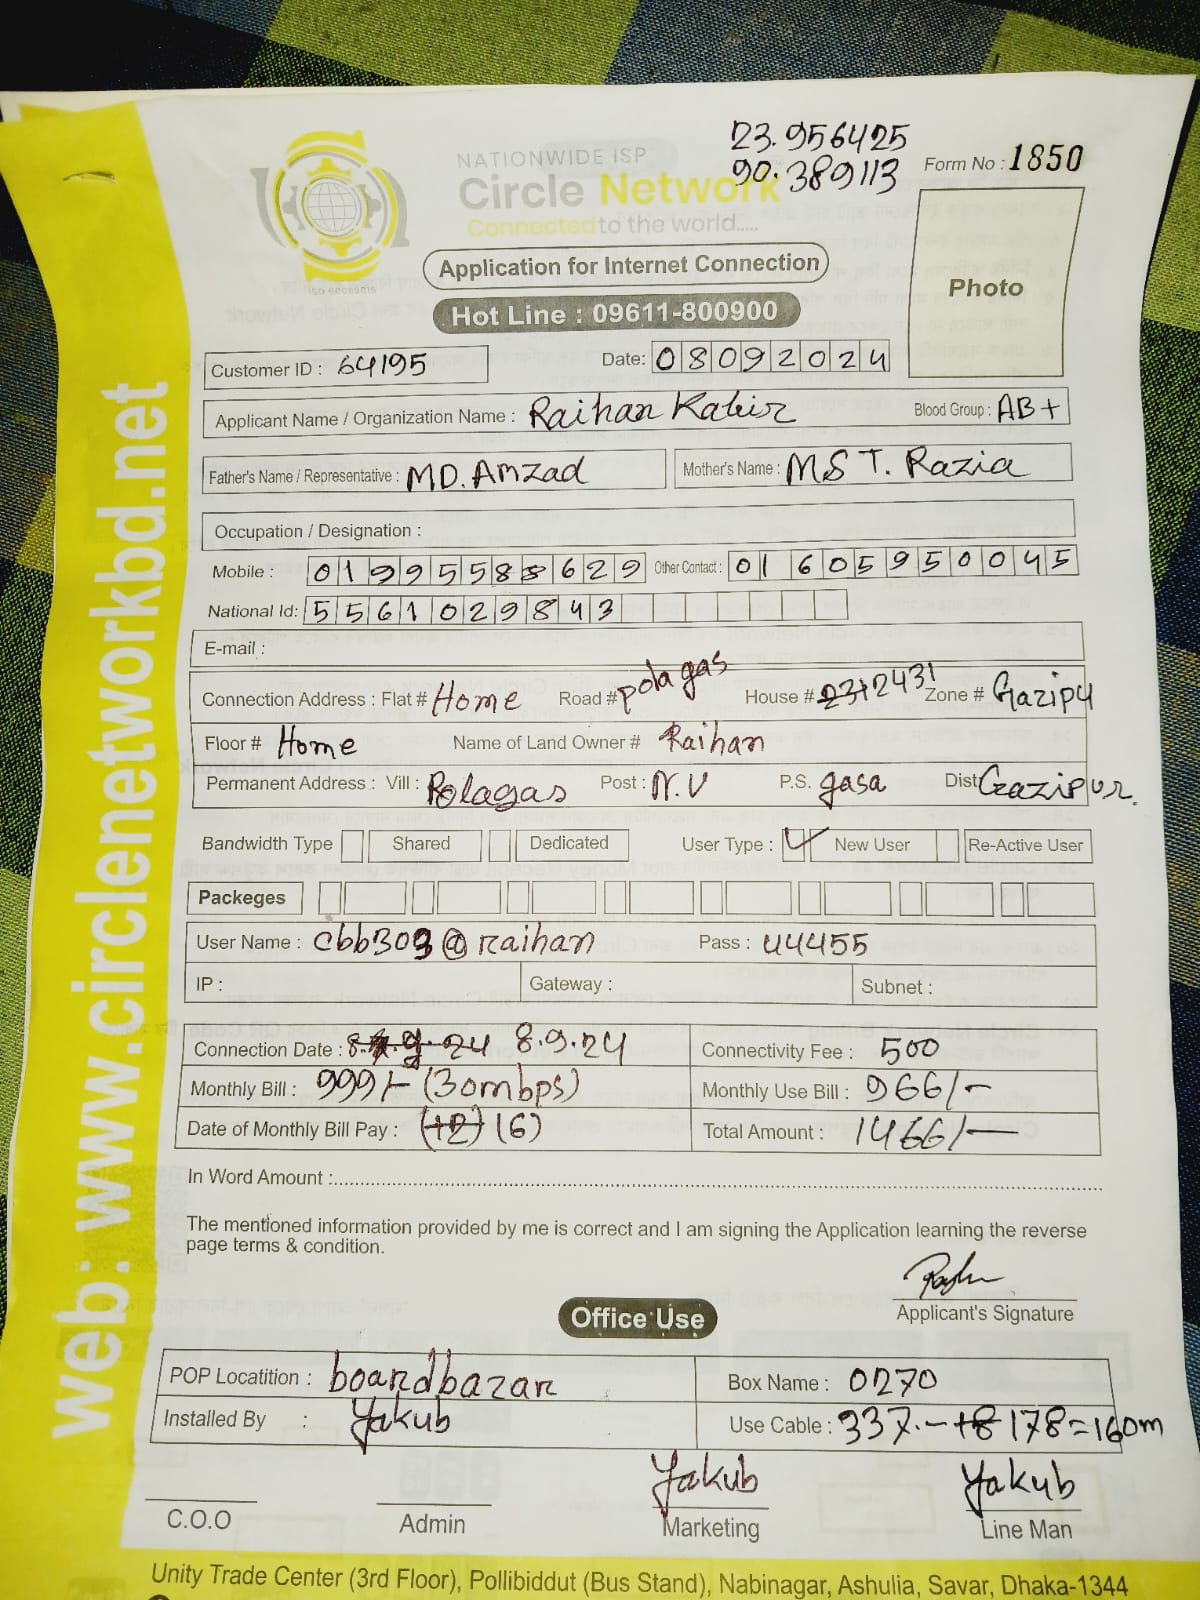 23.956425
90.389113
Form No : 1850
NATIONWIDE ISP
Circle Network
Connected to the world.....
Application for Internet Connection
Hot Line : 09611-800900
Photo
Customer ID : 64195 Date: 08092024
Applicant Name / Organization Name : Raihan Kabir Blood Group : AB+
Father's Name / Representative : MD. Amzad Mother's Name : MST. Razia
Occupation / Designation :
Mobile : 01995588629 Other Contact : 01605950045
National Id: 5561029843
E-mail :
Connection Address : Flat # Home Road # pola gas House # 2431 Zone # Gazipu
Floor # Home Name of Land Owner # Raihan
Permanent Address : Vill : Polagas Post : N.U P.S. gasa Dist Gazipur.
Bandwidth Type Shared Dedicated User Type : New User Re-Active User
Packeges
User Name : cbb303@raihan Pass : 44455
IP : Gateway : Subnet :
Connection Date : 8.9.24 Connectivity Fee : 500
Monthly Bill : 999/- (30mbps) Monthly Use Bill : 966/-
Date of Monthly Bill Pay : (12) (6) Total Amount : 1466/-
In Word Amount :
The mentioned information provided by me is correct and I am signing the Application learning the reverse
page terms & condition.
Applicant's Signature
Office Use
POP Locatition : boardbazar Box Name : 0270
Installed By : Yakub Use Cable : 337.- 178=160m
Yakub Yakub
C.O.O Admin Marketing Line Man
Unity Trade Center (3rd Floor), Pollibiddut (Bus Stand), Nabinagar, Ashulia, Savar, Dhaka-1344
web: www.circlenetworkbd.net